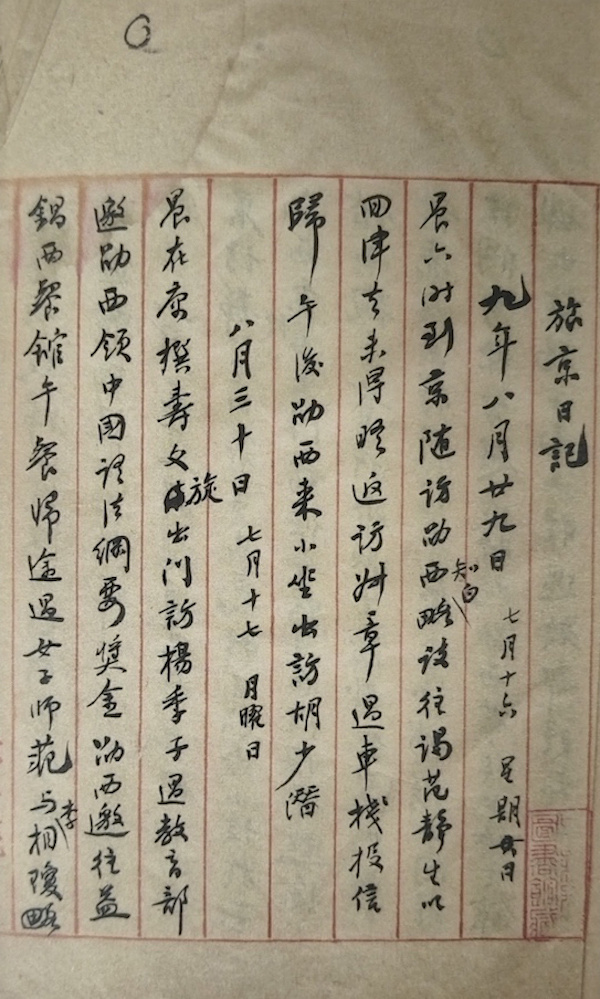 旅京日記
九年八月廿九日 七月十六 星期日
晨六时到京随访劭西知白略谈往谒范静生以
回津去未得晤返访叔章過車棧投信
歸 午後劭西来小坐出訪胡少潛
八月三十日 七月十七 月曜日
晨在撰壽文旋出门訪楊季子過教育部
邀劭西領中國语法綱要奬金劭西邀往益
錩西餐館午餐歸途過女子師范与李相瓊略
圖書館藏